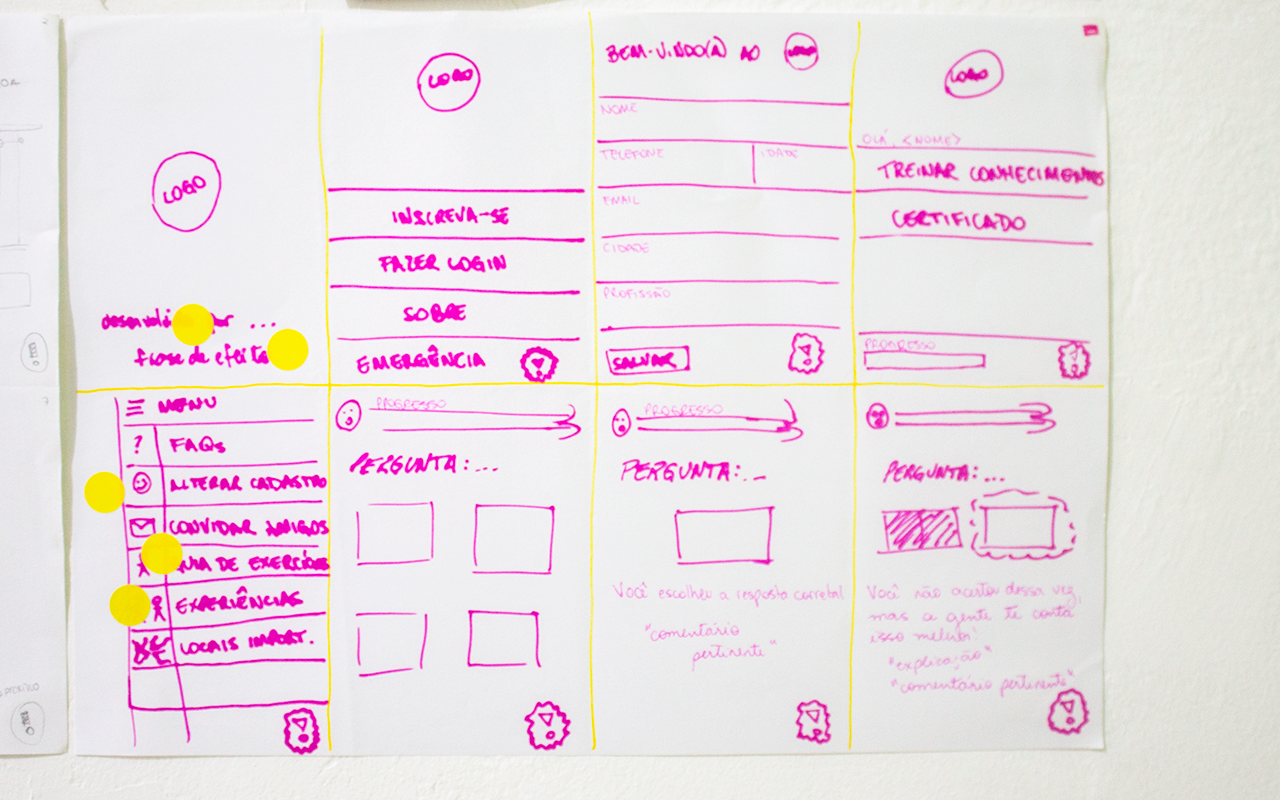 LOGO
frase de efeito
LOGO
INSCREVA-SE
FAZER LOGIN
SOBRE
EMERGÊNCIA
BEM-VINDO(A) AO LOGO
NOME
TELEFONE IDADE
EMAIL
CIDADE
PROFISSÃO
SALVAR
LOGO
OLÁ, <NOME>
TREINAR CONHECIMENTOS
CERTIFICADO
PROGRESSO
MENU
? FAQs
ALTERAR CADASTRO
CONVIDAR AMIGOS
DE EXERCÍCIOS
EXPERIÊNCIAS
LOCAIS IMPORT.
PROGRESSO
PERGUNTA:...
PROGRESSO
PERGUNTA:...
Você escolheu a resposta correta!
"comentário
pertinente"
PERGUNTA:...
Você não acertou dessa vez,
mas a gente te conta
isso melhor!
"explicação"
"comentário pertinente"